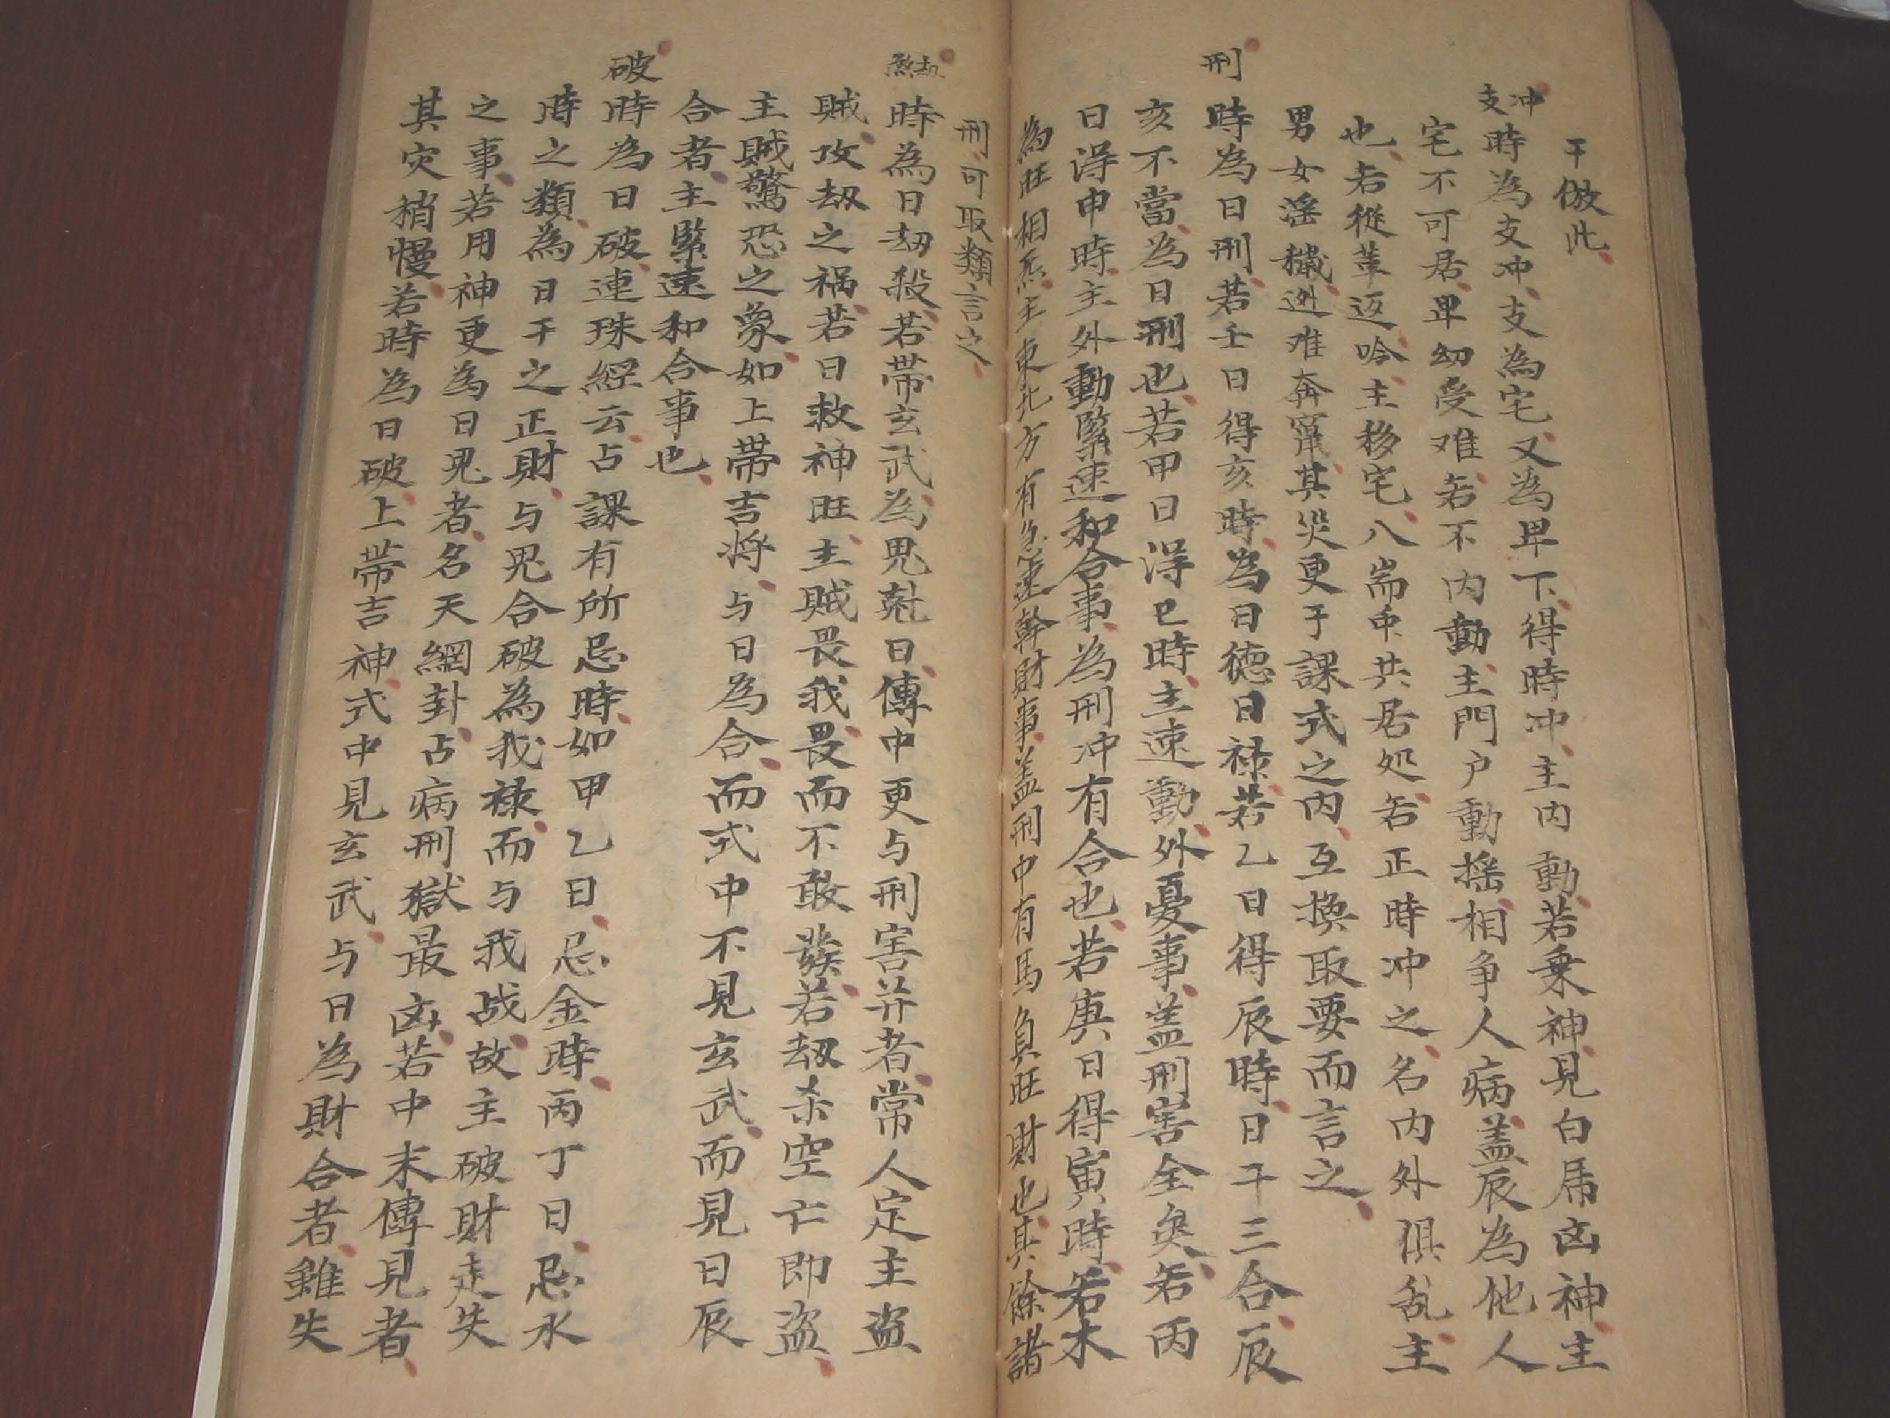 干倣此
冲支
時為支冲支為宅又為卑下得時冲主内動若乗神見白乕凶神主
宅不可居卑幼受难若不内動主門户動揺相争人病盖辰為他人
也若從革返吟主移宅八耑中共居处若正時冲之名内外俱乱主
男女淫穢迯难奔竄其災更于課式之内互换取要而言之
刑
時為日刑若壬日得亥時為日德日禄若乙日得辰時日干三合辰
亥不當為日刑也若甲日得巳時主速動外憂事盖刑害全矣若丙
日得申時主外動緊速和合事為刑冲有合也若庚日得寅時若木
為旺相炁主東北方有急速幹財事盖刑中有馬負旺財也其餘諸
刑可取類言之
劫煞
時為日劫殺若帯玄武為鬼尅日傳中更与刑害并者常人定主盗
賊攻劫之禍若日救神旺主賊畏我畏而不敢發若劫杀空亡即盗
主賊驚恐之象如上帯吉将与日為合而式中不見玄武而見日辰
合者主緊速和合事也
破
時為日破連珠經云占課有所忌時如甲乙日忌金時丙丁日忌水
時之類為日干之正財与鬼合破為我禄而与我战故主破財走失
之事若用神更為日鬼者名天網卦占病刑獄最凶若中末傳見者
其灾稍慢若時為日破上帯吉神式中見玄武与日為財合者雖失